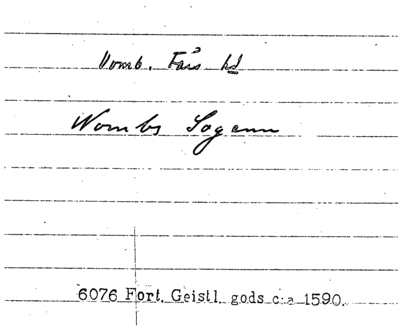 Vomb. Färs hd
Wombs Sogenn
6076 Fort. Geistl. gods c:a 1590.